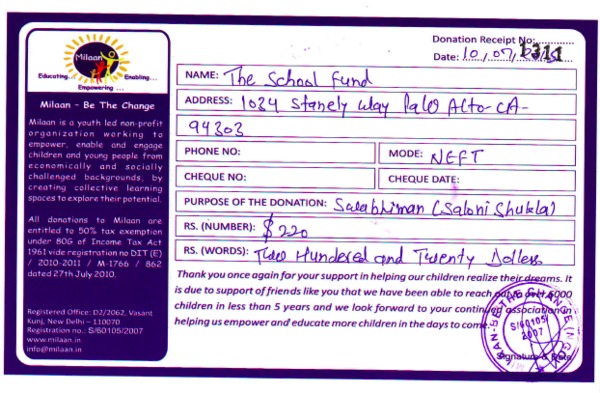 Milaan
Educating...
Enabling...
Empowering ...
Milaan - Be The Change
Milaan is a youth led non-profit
organization working to
empower, enable and engage
children and young people from
economically and socially
challenged backgrounds, by
creating collective learning
spaces to explore their potential.
All donations to Milaan are
entitled to 50% tax exemption
under 80G of Income Tax Act
1961 vide registration no DIT (E)
/ 2010-2011 / M-1766 / 862
dated 27th July 2010.
Registered Office: D2/2062, Vasant
Kunj, New Delhi – 110070
Registration no.: S/60105/2007
www.milaan.in
info@milaan.in
Donation Receipt No: 1311
Date: 10/07/
NAME: The School Fund
ADDRESS: 1034 Stanely way Palo Alto-CA-
94303
PHONE NO:
MODE: NEFT
CHEQUE NO:
CHEQUE DATE:
PURPOSE OF THE DONATION: Swabhiman (Saloni Shukla)
RS. (NUMBER): $ 220
RS. (WORDS): Two Hundered and Twenty Dollers
Thank you once again for your support in helping our children realize their dreams. It
is due to support of friends like you that we have been able to reach out to over 6000
children in less than 5 years and we look forward to your continued association in
helping us empower and educate more children in the days to come.
S/60105
2007
Signature & Date